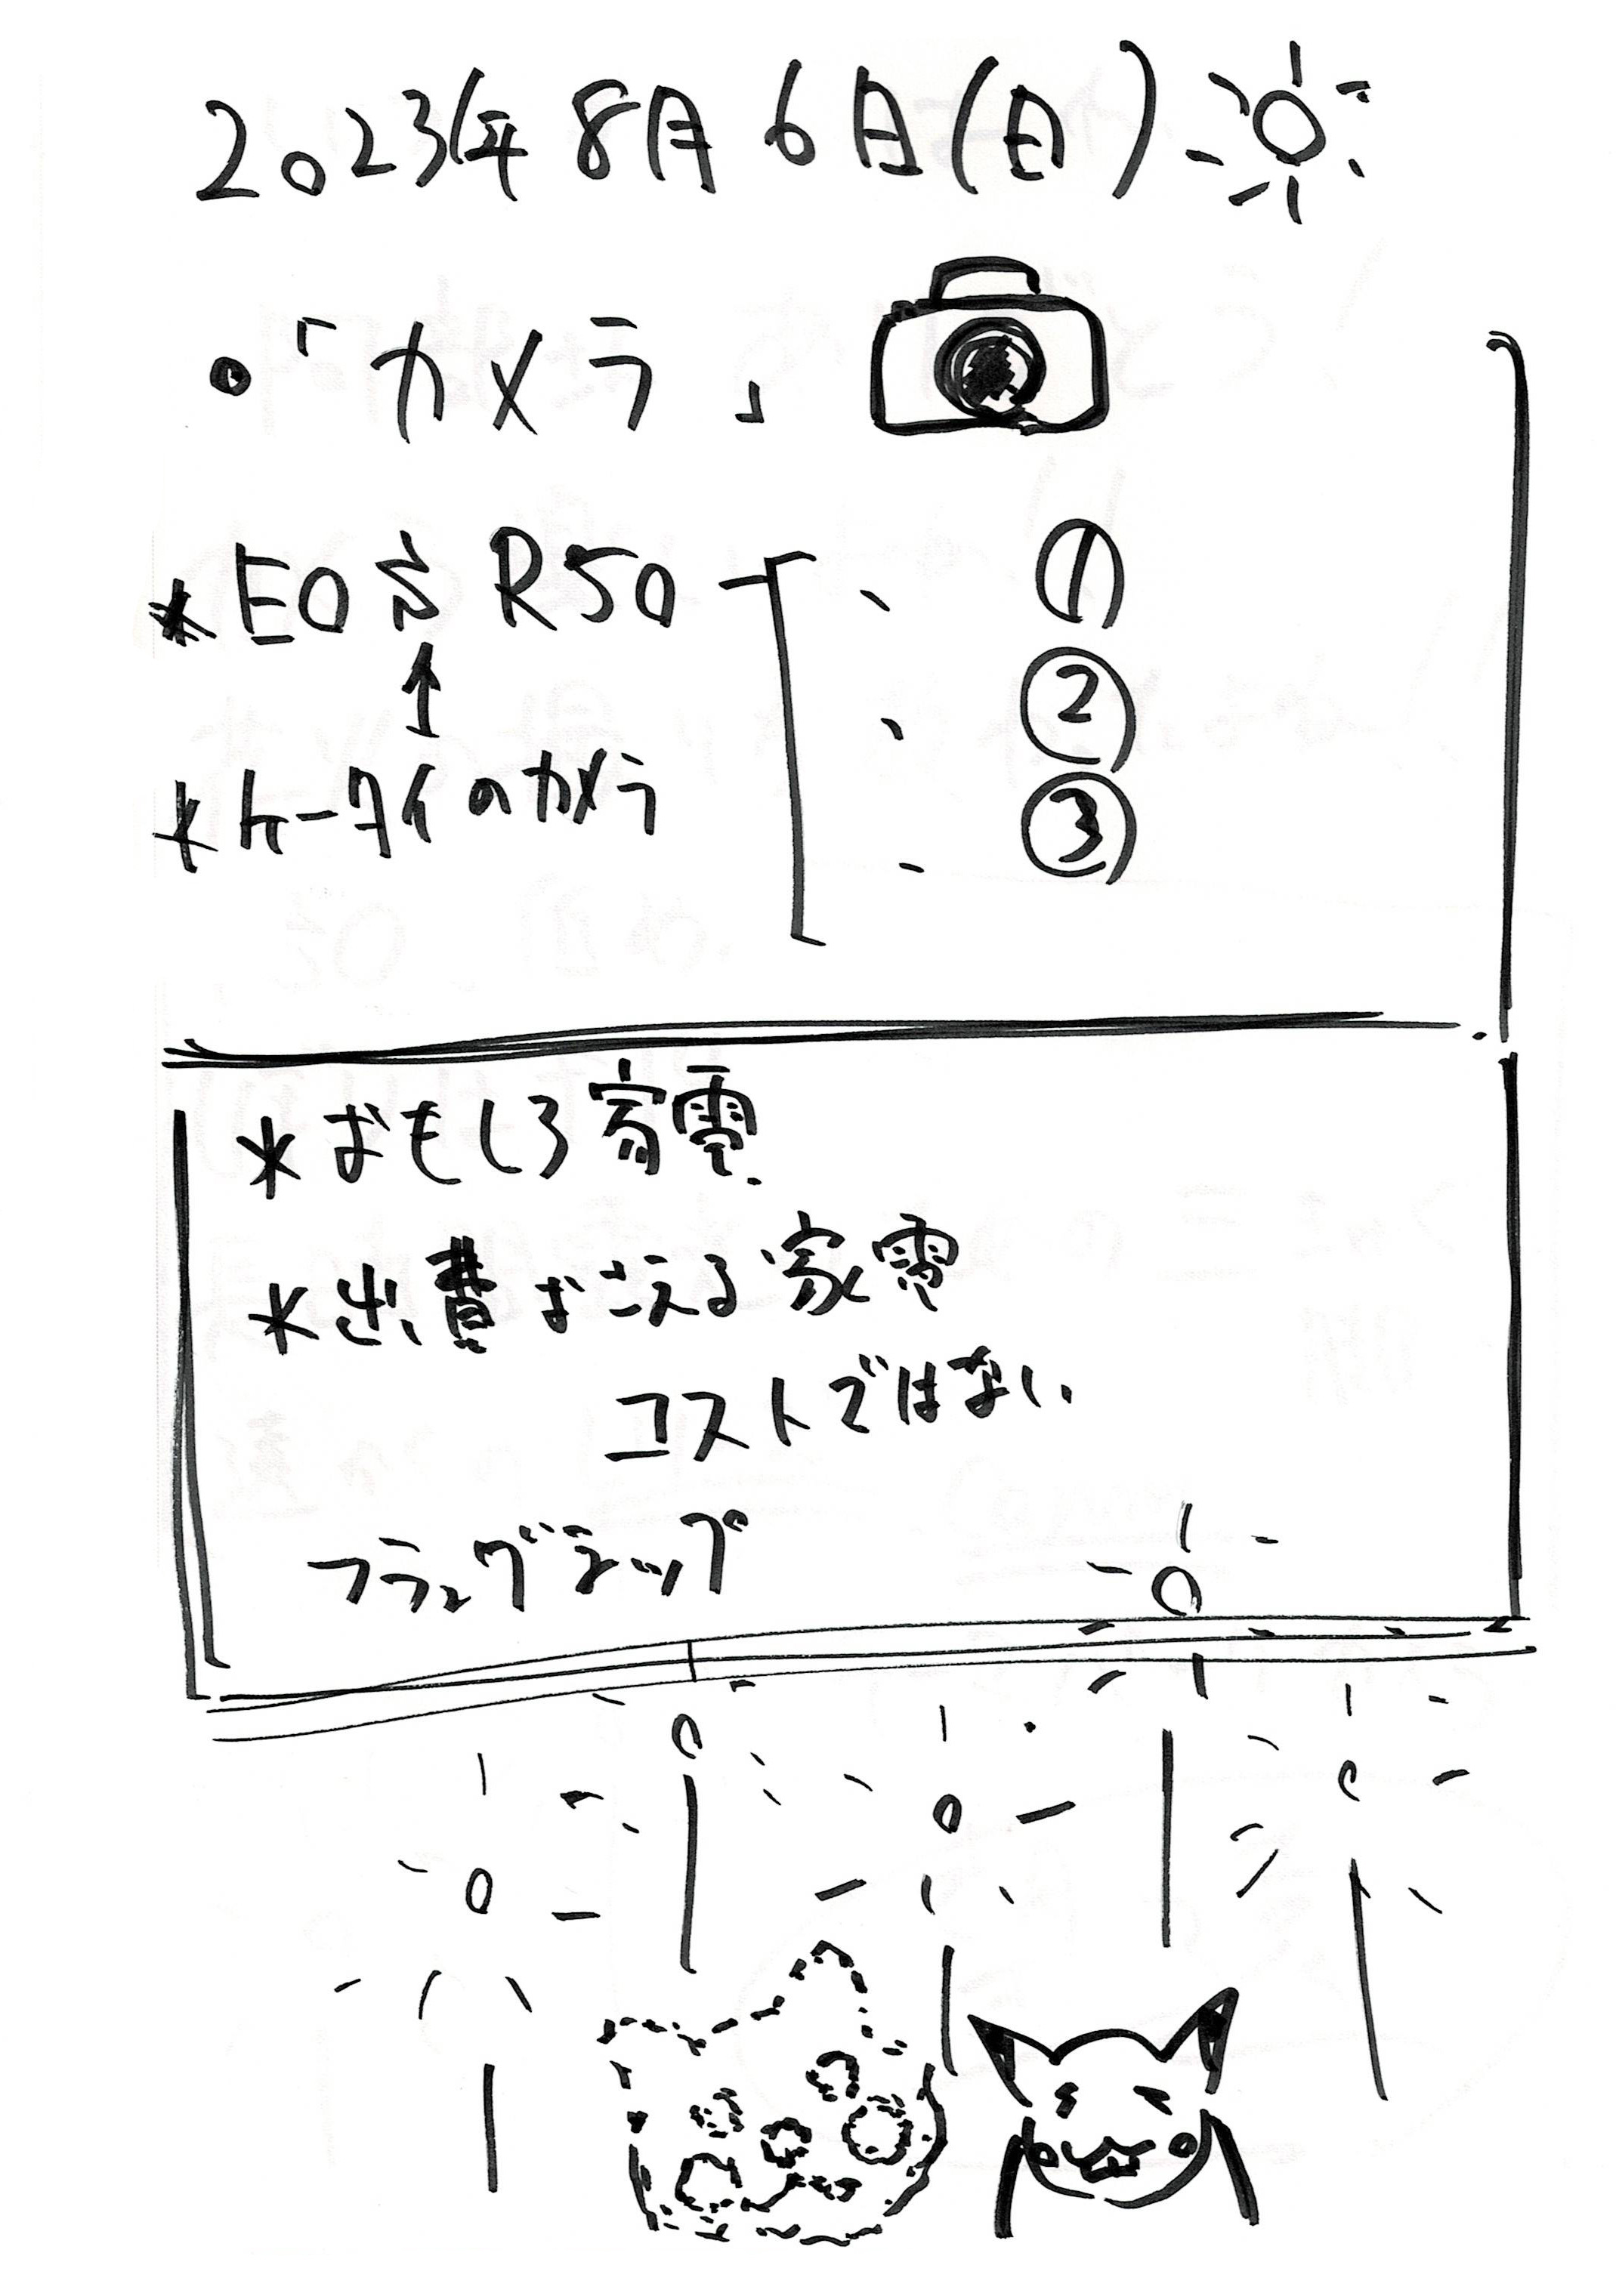 2023年8月6日(日)
・「カメラ」
*EOS R50
①
②
③
*ケータイのカメラ
*おもしろ家電
*出費おさえる家電
コストではない
フラッグシップ